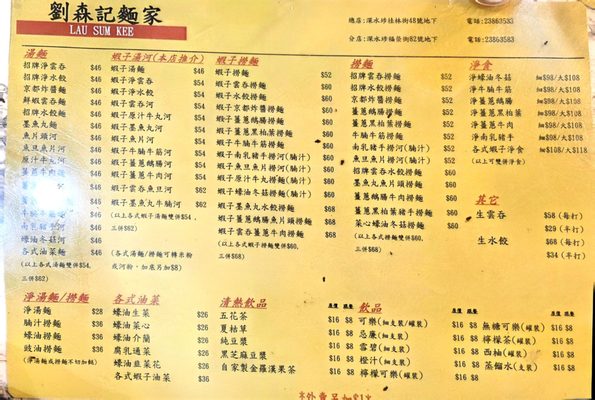 劉森記麵家
LAU SUM KEE
總店:深水埗桂林街48號地下 電話:23863533
分店:深水埗福榮街82號地下 電話:23863583
湯麵
招牌淨雲吞 $46
招牌淨水餃 $46
京都炸醬麵 $46
鮮蝦雲吞麵 $46
招牌水餃麵 $46
墨魚丸麵 $46
魚片頭河 $46
魚旦魚片河 $46
原汁牛丸河 $46
薑蔥
薑蔥
薑蔥
牛腩
南乳
蠔油冬菇河 $46
各式油菜麵 $46
(以上各式湯麵雙併$54,
三併$62)
蝦子湯河(本店推介)
蝦子湯麵 $46
蝦子淨雲吞 $54
蝦子淨水餃 $54
蝦子雲吞河 $54
蝦子原汁牛丸河 $54
蝦子墨魚丸河 $54
蝦子魚片頭河 $54
蝦子牛腩牛筋河 $54
蝦子薑蔥鵝腸河 $54
蝦子薑蔥牛肉河 $54
蝦子雲吞魚旦河 $62
(以上各式蝦子湯麵雙併$54,
三併$62)
(各式湯麵/撈麵可轉米粉
或河粉,加底另加$8)
蝦子撈麵
蝦子撈麵 $52
蝦子雲吞撈麵 $52
蝦子水餃撈麵 $60
蝦子京都炸醬撈麵 $60
蝦子薑蔥鵝腸撈麵 $60
蝦子薑蔥黑柏葉撈麵 $60
蝦子牛腩牛筋撈麵 $60
蝦子南乳豬手撈河(腩汁) $60
蝦子魚旦魚片撈河(腩汁) $60
蝦子薑蔥牛肉撈麵 $60
蝦子蠔油冬菇撈麵(腩汁) $60
蝦子墨魚丸水餃撈麵 $68
蝦子薑蔥鵝腸魚片頭撈麵 $68
蝦子雲吞薑蔥牛肉撈麵 $68
(以上各式蝦子撈麵雙併$60,
三併$68)
撈麵
招牌雲吞撈麵 $52
招牌水餃撈麵 $52
京都炸醬撈麵 $52
薑蔥鵝腸撈麵 $52
薑蔥黑柏葉撈麵 $52
牛腩牛筋撈麵 $52
南乳豬手撈河(腩汁) $52
魚旦魚片撈河(腩汁) $52
招牌雲吞水餃撈麵 $60
墨魚丸魚片頭撈麵 $60
薑蔥鵝腸牛肉撈麵 $60
薑蔥黑柏葉豬手撈麵 $60
菜心蠔油冬菇撈麵 $60
(以上各式撈麵雙併$60,
三併$68)
淨食
淨蠔油冬菇 細$98/大$108
淨牛腩牛筋 細$98/大$108
淨薑蔥鵝腸 細$98/大$108
淨薑蔥黑柏葉 細$98/大$108
淨薑蔥牛肉 細$98/大$108
淨南乳豬手 細$98/大$108
各式蝦子淨食 細$108/大$118
(以上可雙併淨食)
其它
生雲吞 $58 (每打)
$29 (半打)
生水餃 $68 (每打)
$34 (半打)
淨湯麵/撈麵
淨湯麵 $28
腩汁撈麵 $36
蠔油撈麵 $36
豉油撈麵 $36
(淨湯麵或撈麵不切加餸)
各式油菜
蠔油生菜 $26
蠔油菜心 $26
蠔油介蘭 $26
腐乳通菜 $26
蠔油韭菜花 $26
各式蝦子油菜 $36
清熱飲品 單價 跟餐
五花茶 $16 $8
夏枯草 $16 $8
純豆漿 $16 $8
黑芝麻豆漿 $16 $8
自家製金羅漢果茶 $16 $8
飲品 單價 跟餐
可樂(細支裝/罐裝) $16 $8
忌廉(細支裝) $16 $8
雪碧(細支裝) $16 $8
橙汁(細支裝) $16 $8
檸檬可樂(罐裝) $16 $8
單價 跟餐
無糖可樂(罐裝) $16 $8
檸檬茶(罐裝) $16 $8
西柚(罐裝) $16 $8
蒸餾水(支裝) $16 $8
*外賣另加$1*